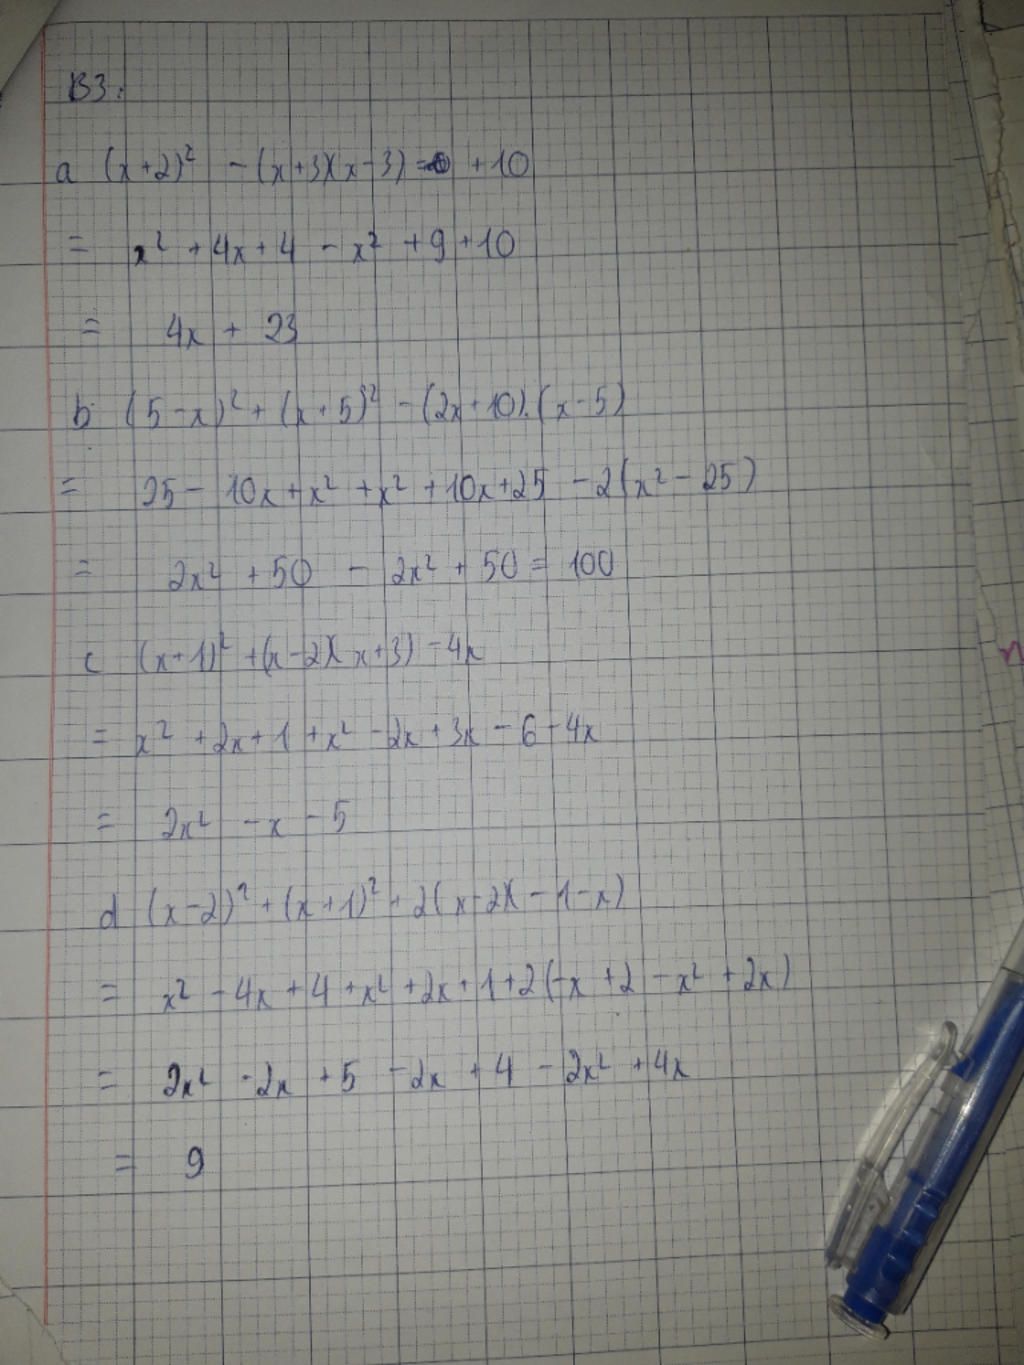 B3:
a (x+2)² - (x+3)(x-3) + 10
= x² + 4x + 4 - x² + 9 + 10
= 4x + 23
b (5-x)² + (x+5)² - (2x+10).(x-5)
= 25 - 10x + x² + x² + 10x + 25 - 2(x² - 25)
= 2x² + 50 - 2x² + 50 = 100
c (x+1)² + (x-2)(x+3) - 4x
= x² + 2x + 1 + x² - 2x + 3x - 6 - 4x
= 2x² - x - 5
d (x-2)² + (x+1)² + 2(x-2)(-1-x)
= x² - 4x + 4 + x² + 2x + 1 + 2(-x + 2 - x² + 2x)
= 2x² - 2x + 5 - 2x + 4 - 2x² + 4x
= 9